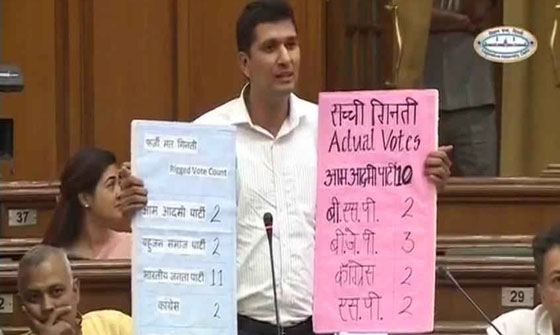 फर्जी मत गिनती
Rigged Vote Count
आम आदमी पार्टी 2
बहुजन समाज पार्टी 2
भारतीय जनता पार्टी 11
कांग्रेस 2
सच्ची गिनती
Actual Votes
आम आदमी पार्टी 10
बी.एस.पी. 2
बी.जे.पी. 3
काँग्रेस 2
एस.पी. 2
37
29
29